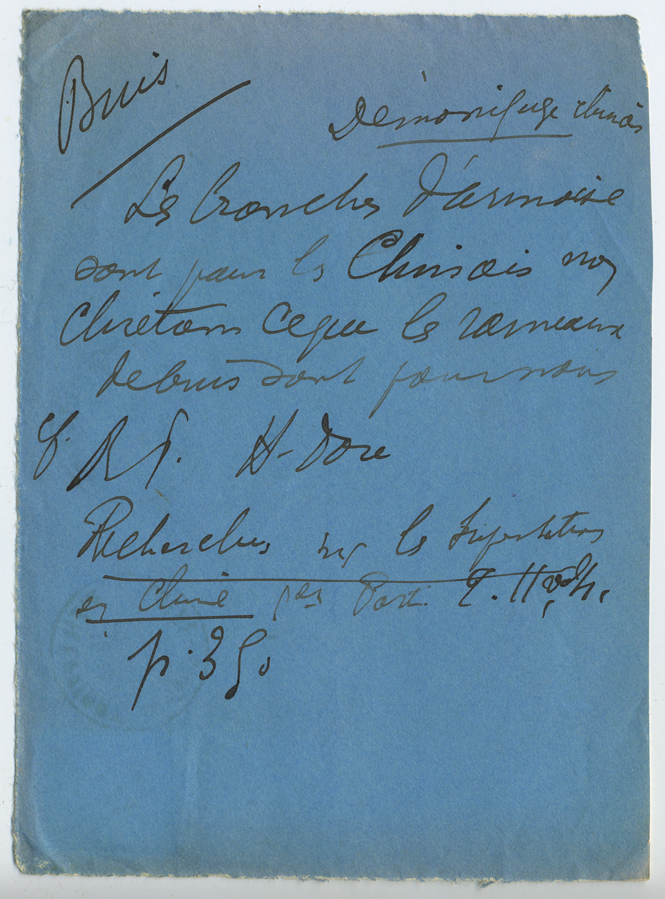 Buis
Démonifuge chinois
Les branches d'armoise
sont pour les Chinois non
Chrétiens ce que les rameaux
de buis sont pour nous
cf. R P. H. Dore
Recherches sur les Superstitions
en Chine 1ere Part. T. II vol 4.
p. 350